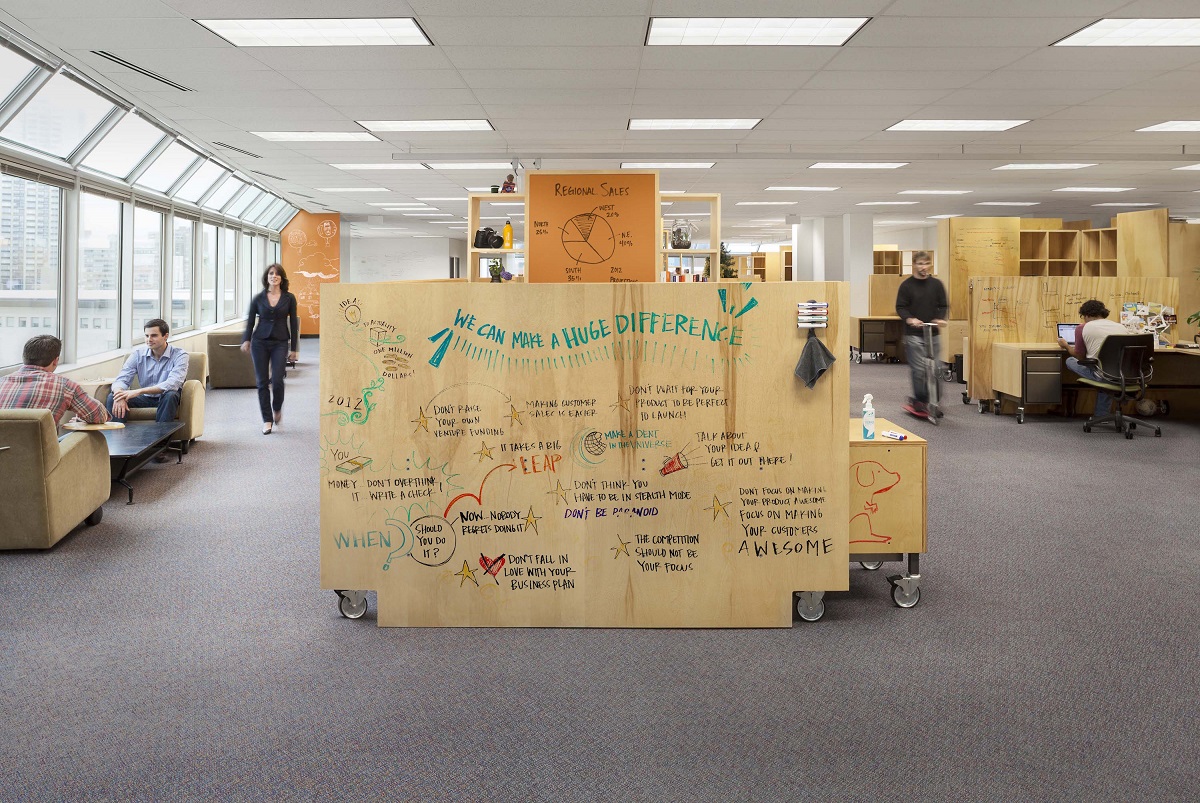 REGIONAL SALES
WEST
20%
NORTH
N.E.
40%
SOUTH
2012
IDEAS
TO ACTUALITY
ONE MILLION
DOLLARS!
2012
WE CAN MAKE A HUGE DIFFERENCE
DON'T RAISE
YOUR OWN
VENTURE FUNDING
MAKING CUSTOMER
SALES IS EASIER
DON'T WAIT FOR YOUR
PRODUCT TO BE PERFECT
TO LAUNCH!
IT TAKES A BIG
LEAP
MAKE A DENT
IN THE UNIVERSE
TALK ABOUT
YOUR IDEA!
GET IT OUT THERE!
YOU
MONEY DON'T OVERTHINK
IT WRITE A CHECK!
DON'T THINK YOU
HAVE TO BE IN STEALTH MODE
DON'T BE PARANOID
DON'T FOCUS ON MAKING
YOUR PRODUCT AWESOME
FOCUS ON MAKING
YOUR CUSTOMERS
AWESOME
WHEN
SHOULD
YOU DO
IT?
NOW... NOBODY
REGRETS DOING IT
DON'T FALL IN
LOVE WITH YOUR
BUSINESS PLAN
THE COMPETITION
SHOULD NOT BE
YOUR FOCUS